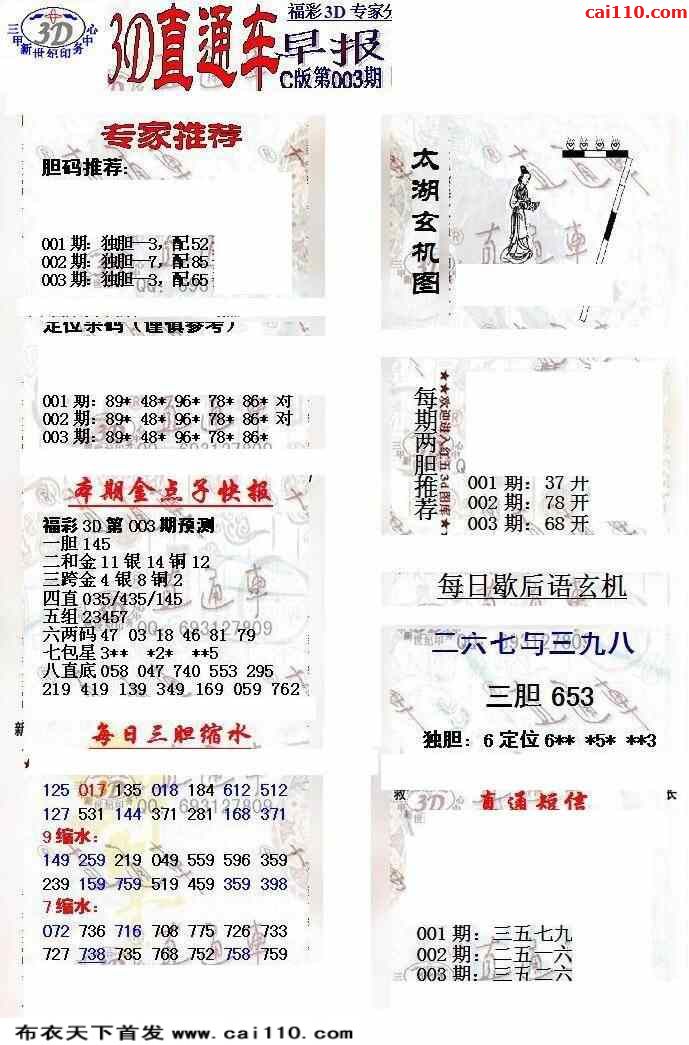 cai110.com
福彩3D 专家
三甲 3D 中心
新世纪印务
3D直通车
早报
C版第003期
专家推荐
胆码推荐:
001 期: 独胆—3, 配52
002 期: 独胆—7, 配85
003 期: 独胆—3, 配65
定位杀码（谨慎参考）
001 期: 89* 48* 96* 78* 86* 对
002 期: 89* 48* 96* 78* 86* 对
003 期: 89* 48* 96* 78* 86*
本期金点子快报
福彩 3D 第 003 期预测
一胆 145
二和金 11 银 14 铜 12
三跨金 4 银 8 铜 2
四直 035/435/145
五组 23457
六两码 47 03 18 46 81 79
七包星 3** *2* **5
八直底 058 047 740 553 295
219 419 139 349 169 059 762
新
每日三胆缩水
125 017 135 018 184 612 512
127 531 144 371 281 168 371
9 缩水:
149 259 219 049 559 596 359
239 159 759 519 459 359 398
7 缩水:
072 736 716 708 775 726 733
727 738 735 768 752 758 759
太湖玄机图
每期两胆推荐
★★欢迎进入红五3d图库★
001 期: 37 开
002 期: 78 开
003 期: 68 开
每日歇后语玄机
二六七与三九八
三胆 653
独胆: 6 定位 6** *5* **3
直通短信
001 期: 三五七九
002 期: 二五一六
003 期: 三五二六
QQ: 693127809
布衣天下首发 www.cai110.com